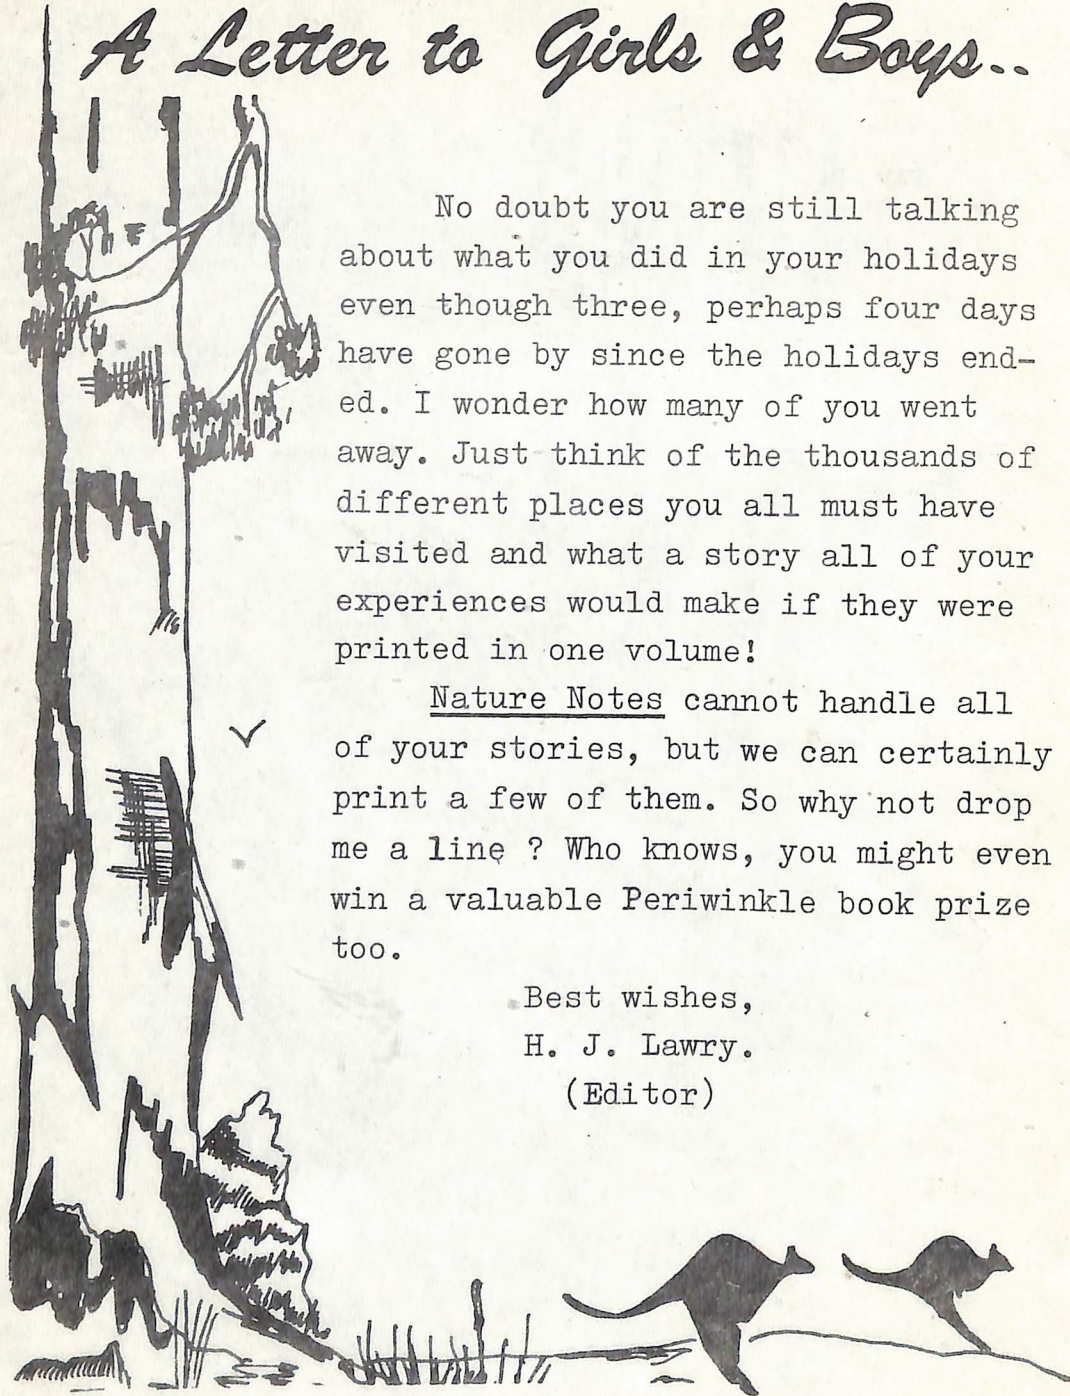 A Letter to Girls & Boys..
No doubt you are still talking
about what you did in your holidays
even though three, perhaps four days
have gone by since the holidays end-
ed. I wonder how many of you went
away. Just think of the thousands of
different places you all must have
visited and what a story all of your
experiences would make if they were
printed in one volume!
Nature Notes cannot handle all
of your stories, but we can certainly
print a few of them. So why not drop
me a line ? Who knows, you might even
win a valuable Periwinkle book prize
too.
Best wishes,
H. J. Lawry.
(Editor)